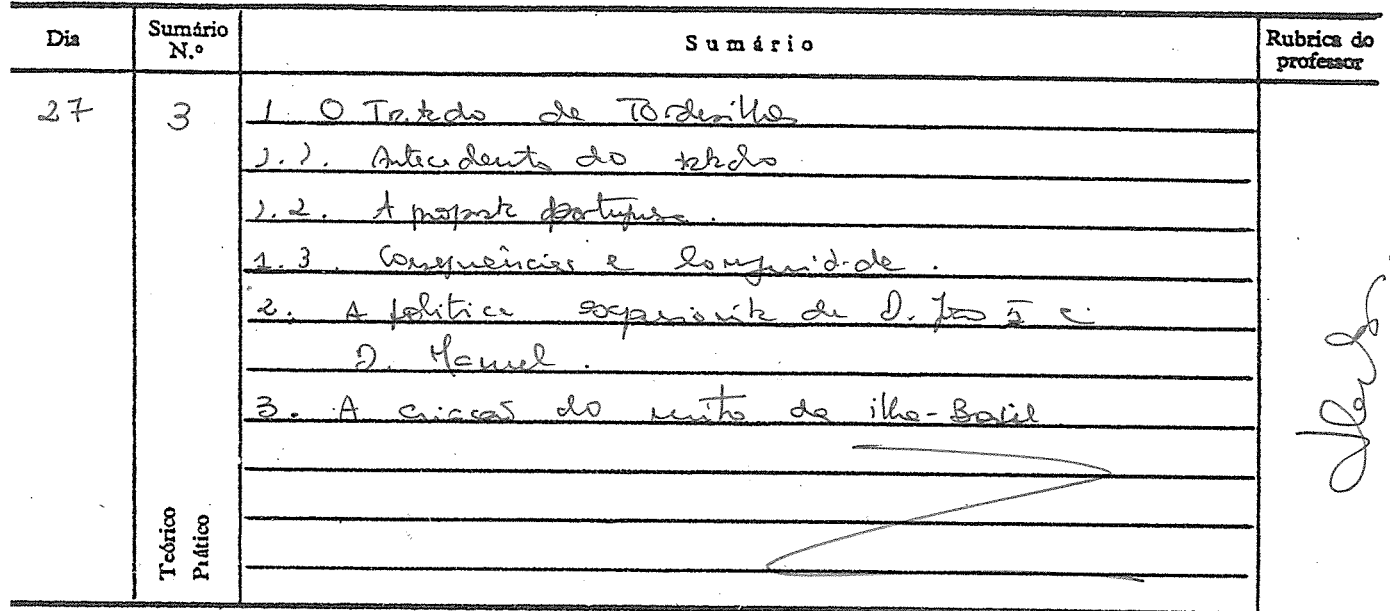 Dia
Sumário N.º
Sumário
Rubrica do professor
27
3
1. O Tratado de Tordesilhas
1.1. Antecedentes do tratado
1.2. A proposta portuguesa.
1.3. Consequências e
2. A política de D. João II e
D. Manuel.
3. A criação do mito da ilha-Brasil
Teórico
Prático